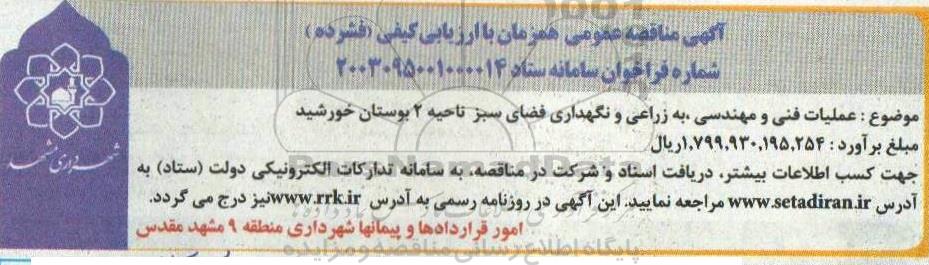 آگهی مناقصه عمومی همزمان با ارزیابی کیفی (فشرده)
شماره فراخوان سامانه ستاد ۲۰۰۳۰۹۵۰۰۱۰۰۰۰۱۴
موضوع : عملیات فنی و مهندسی ،به زراعی و نگهداری فضای سبز ناحیه ۲ بوستان خورشید
مبلغ برآورد : ۱.۷۹۹,۹۳۰,۱۹۵,۲۵۴ریال
جهت کسب اطلاعات بیشتر، دریافت اسناد و شرکت در مناقصه، به سامانه تدارکات الکترونیکی دولت (ستاد) به
آدرس www.setadiran.ir مراجعه نمایید. این آگهی در روزنامه رسمی به آدرس www.rrk.irنیز درج می گردد.
امور قراردادها و پیمانها شهرداری منطقه ۹ مشهد مقدس
شهرداری مشهد
ParsNamadData
پایگاه اطلاع رسانی مناقصه و مزایده